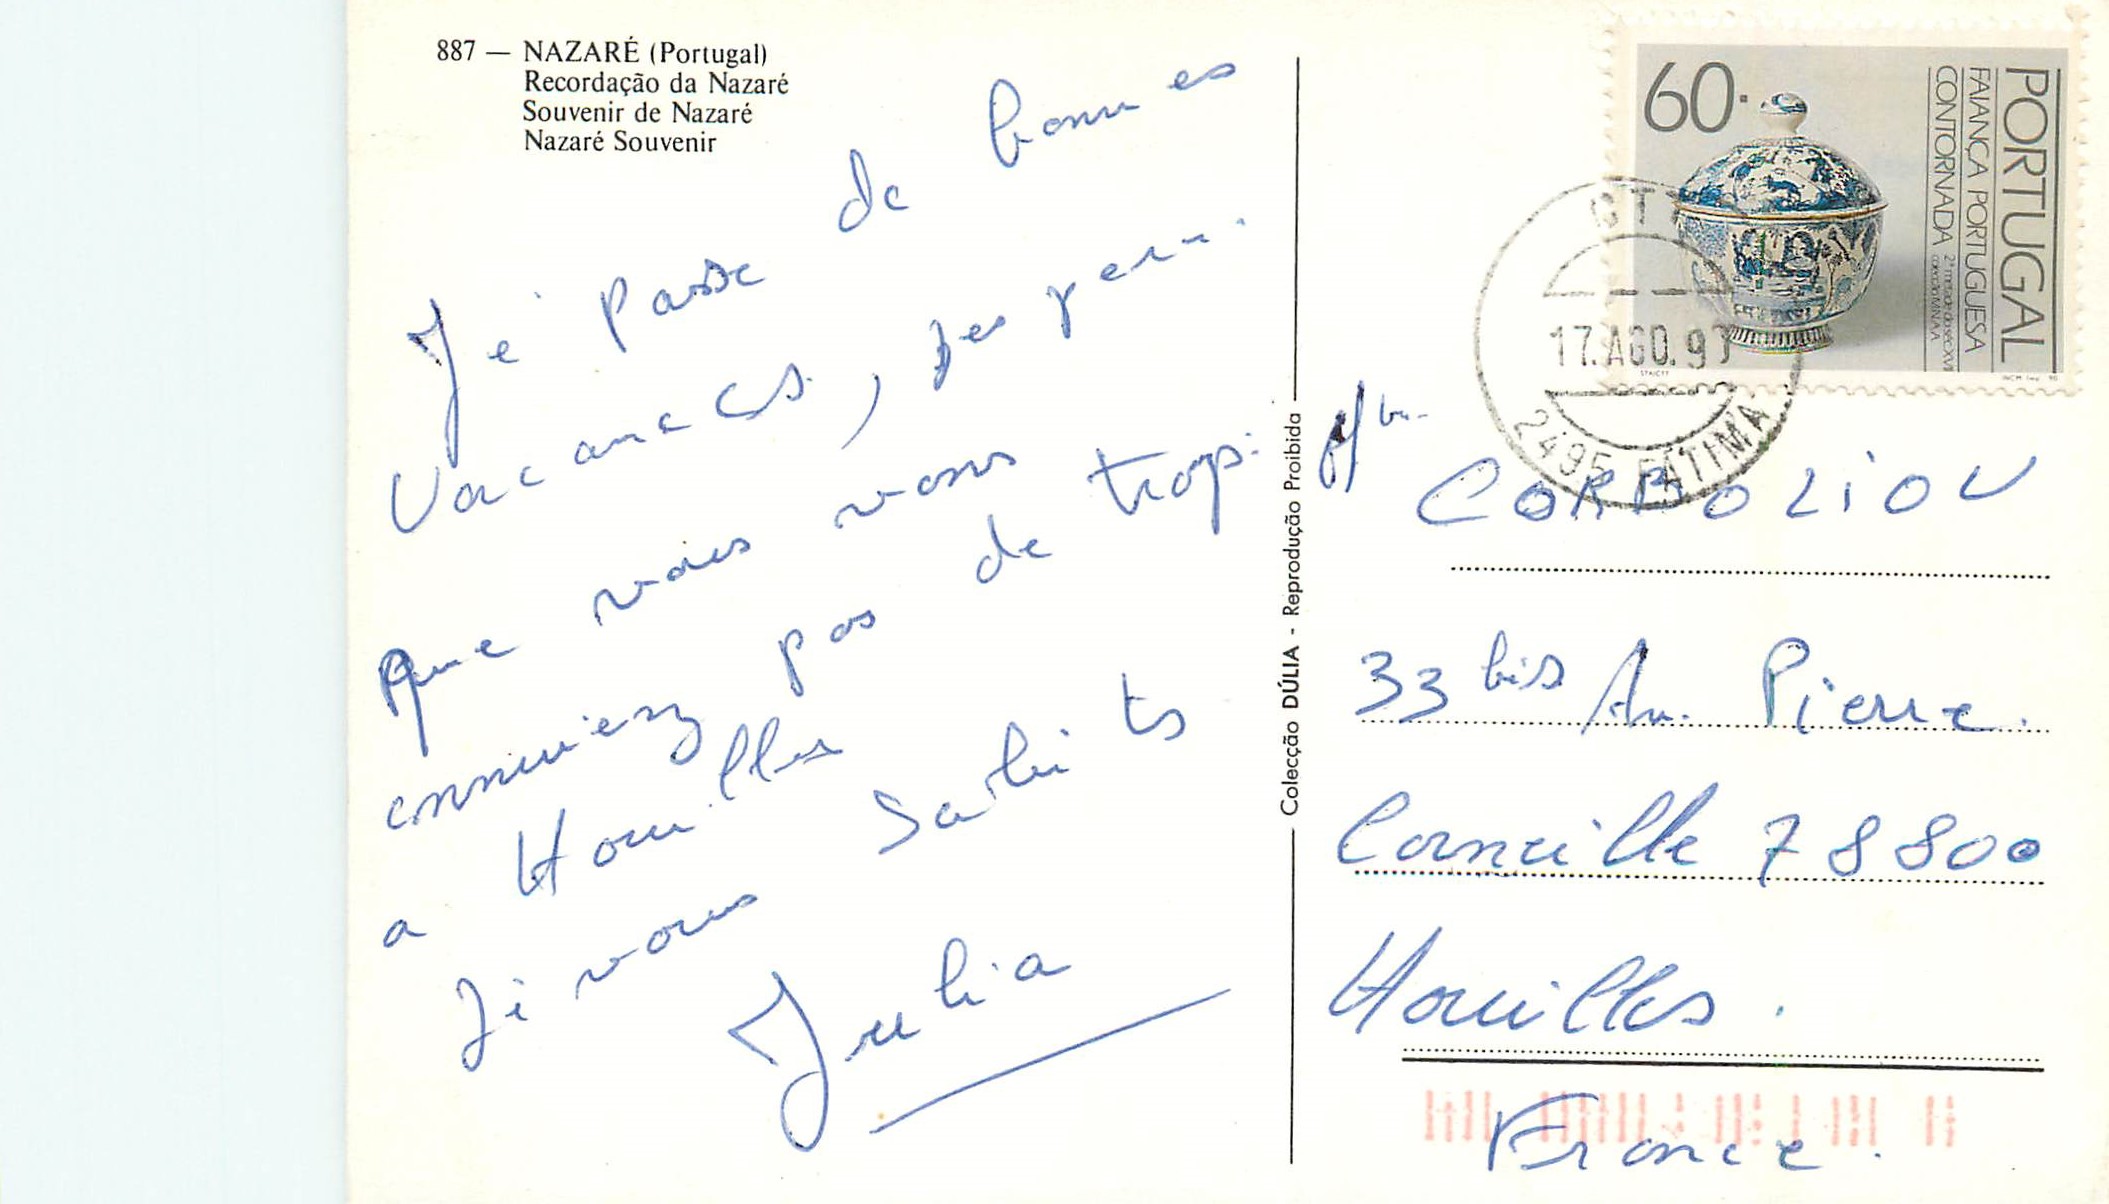 887 — NAZARÉ (Portugal)
Recordação da Nazaré
Souvenir de Nazaré
Nazaré Souvenir
Jé passe de bonnes
vacances, jespere
que vous vous
ennuiez pas de trop.
a Houilles
Jé vous Saluts
Julia
Colecção DÚLIA - Reprodução Proibida
60.
PORTUGAL
FAIANÇA PORTUGUESA
CONTORNADA
2ª metade do séc. XVII
colecção M.N.A.A.
17.AGO.9
2495 FÁTIMA
CORBOLIOU
33 bis Av. Pierre.
Corneille 78800
Houilles.
France.